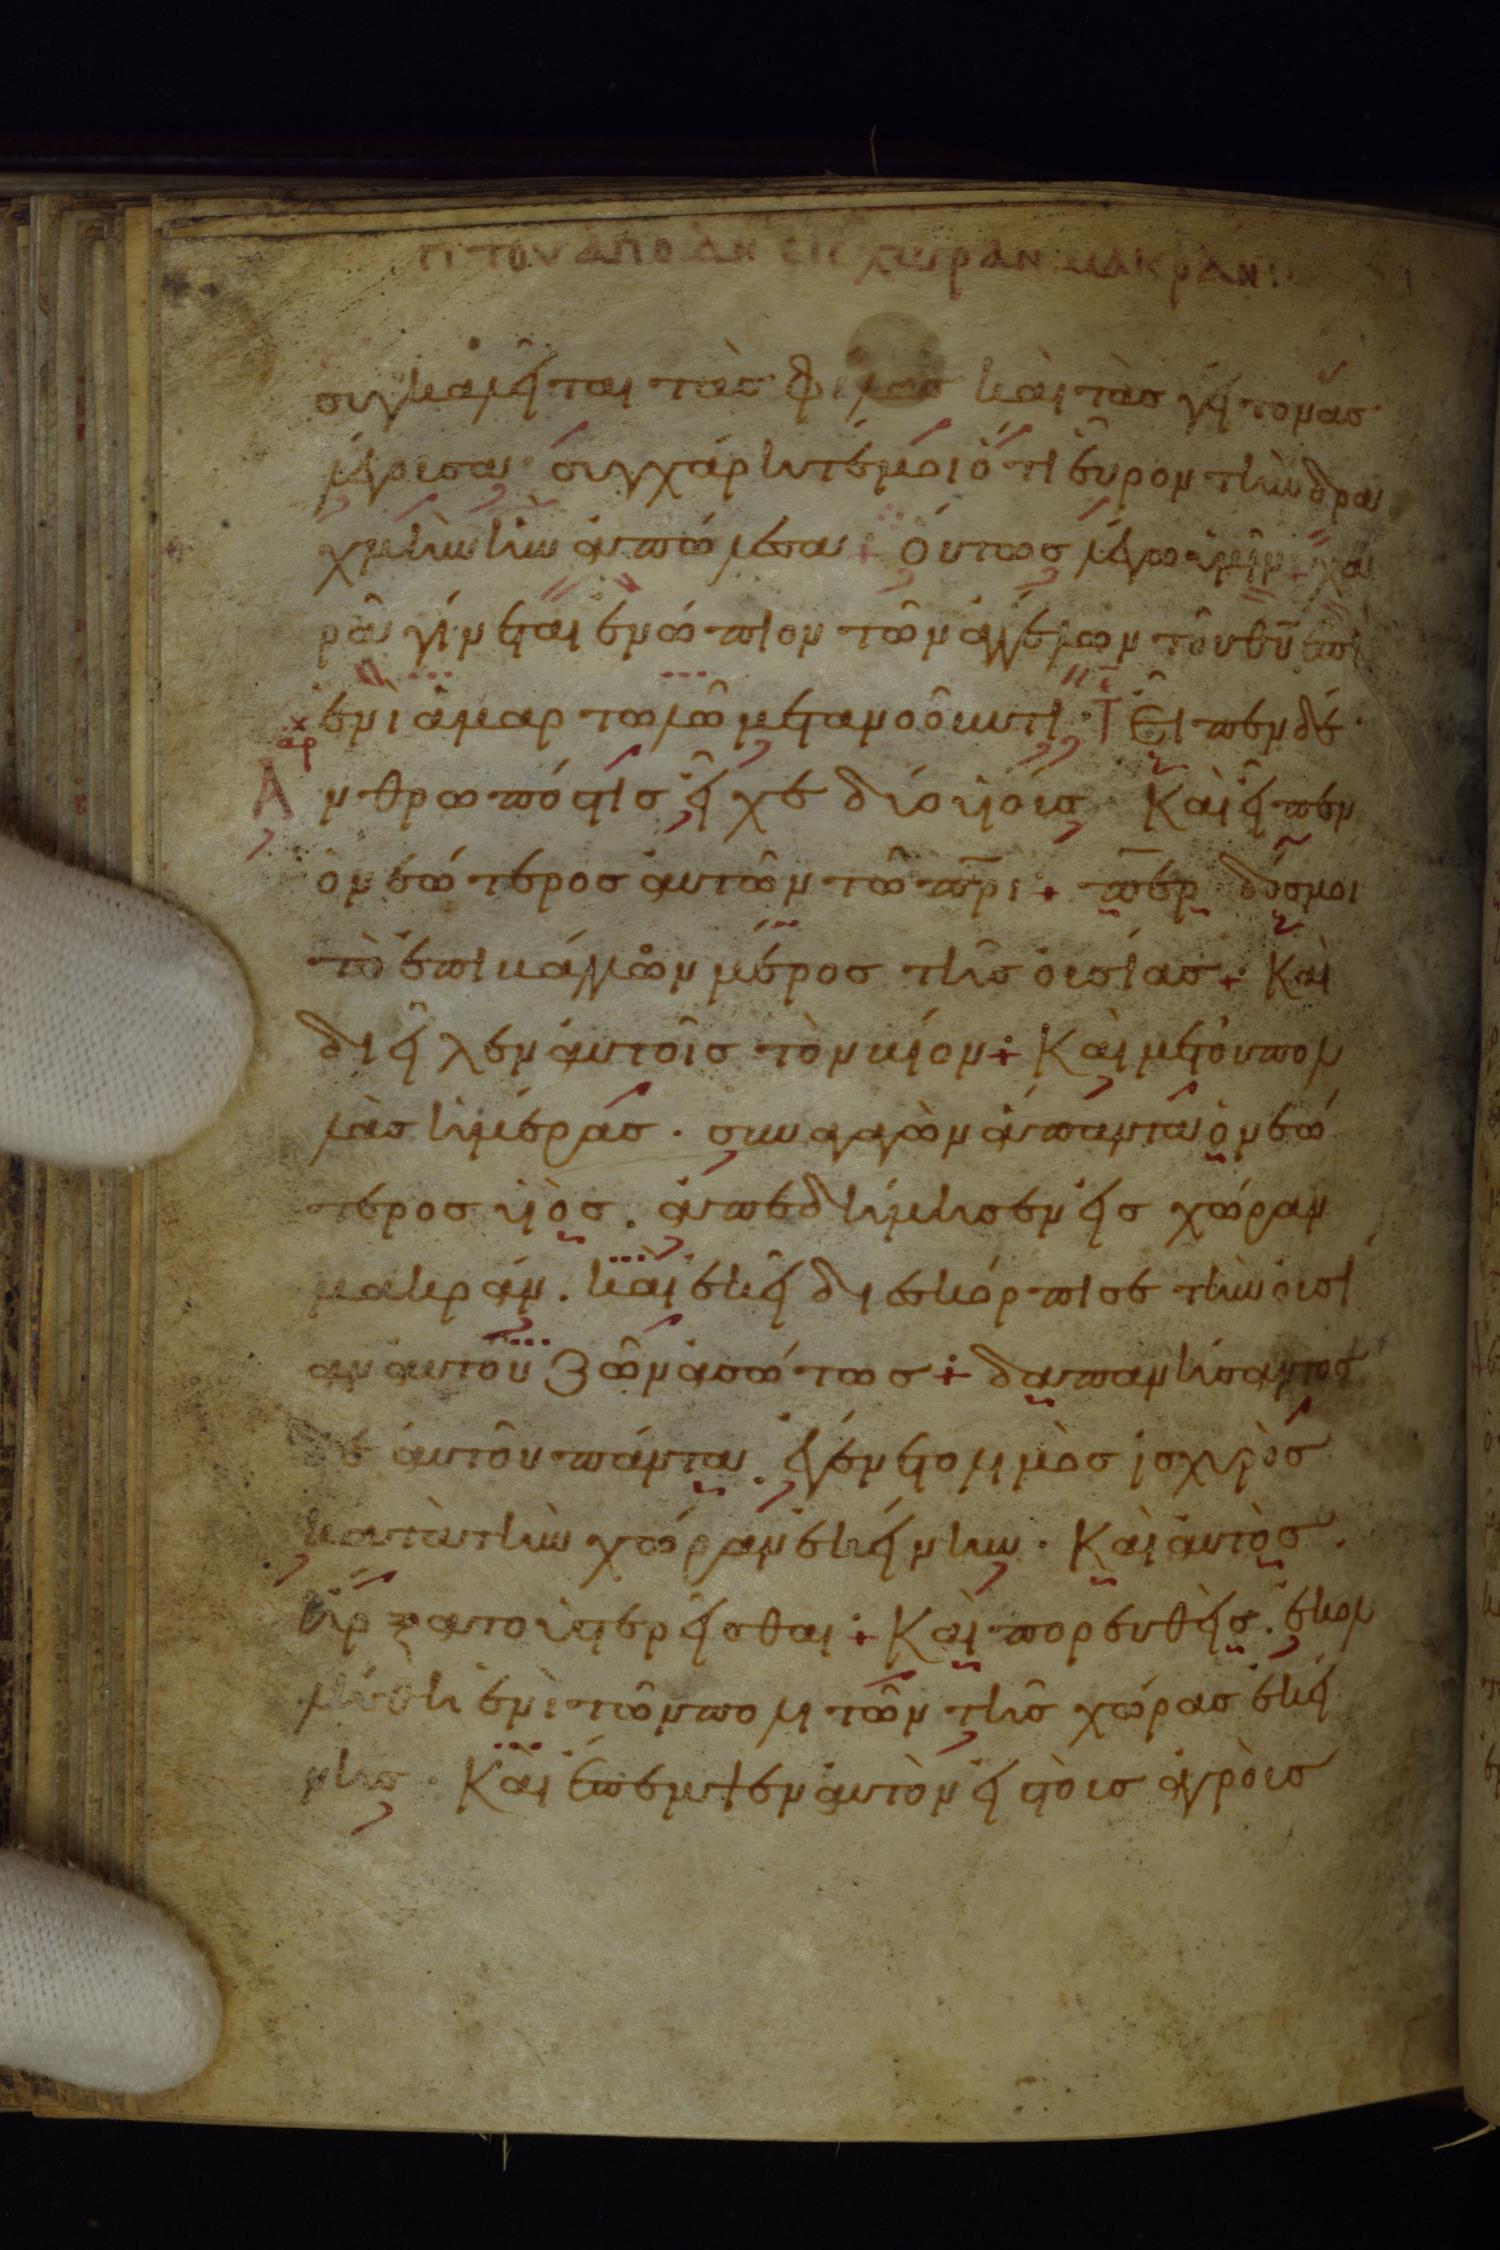 πι τον αποδη εις χωραν μακραν:
συγκαλεῖται τὰς φίλας καὶ τὰς γείτονας
λέγουσα· συγχάρητέ μοι ὅτι εὗρον τὴν δρα
χμὴν ἣν ἀπώλεσα + οὕτως λέγω ὑμῖν + χα
ρὰ γίνεται ἐνώπιον τῶν ἀγγέλων τοῦ θυ ἐπὶ
ἑνὶ ἁμαρτωλῶ μετανοοῦντι · Εἶπεν δέ·
αρ
Ἄνθρωπός τις εἶχε δύο υἱούς· Καὶ εἶπεν
ὁ νεώτερος αὐτῶν τῶ πρι + περ δός μοι
τὸ ἐπιβάλλον μέρος τῆς οὐσίας + Καὶ
διεῖλεν αὐτοῖς τὸν βίον + Καὶ μετ οὐ πολ
λὰς ἡμέρας · συναγαγὼν ἅπαντα ὁ νεώ
τερος υἱός . ἀπεδήμησεν εἰς χώραν
μακράν . καὶ ἐκεῖ διεσκόρπισε τὴν οὐσί
αν αὐτοῦ ζῶν ἀσώτως + δαπανήσαντος
δὲ αὐτοῦ πάντα . ἐγένετο λιμὸς ἰσχυρὸς
κατὰ τὴν χώραν ἐκείνην · Καὶ αὐτὸς .
ἤρξατο ὑστερεῖσθαι + Καὶ πορευθεὶς . ἐκολ
λήθη ἑνὶ τῶν πολιτῶν τῆς χώρας ἐκεί
νης · Καὶ ἔπεμψεν αὐτὸν εἰς τοὺς ἀγροὺς